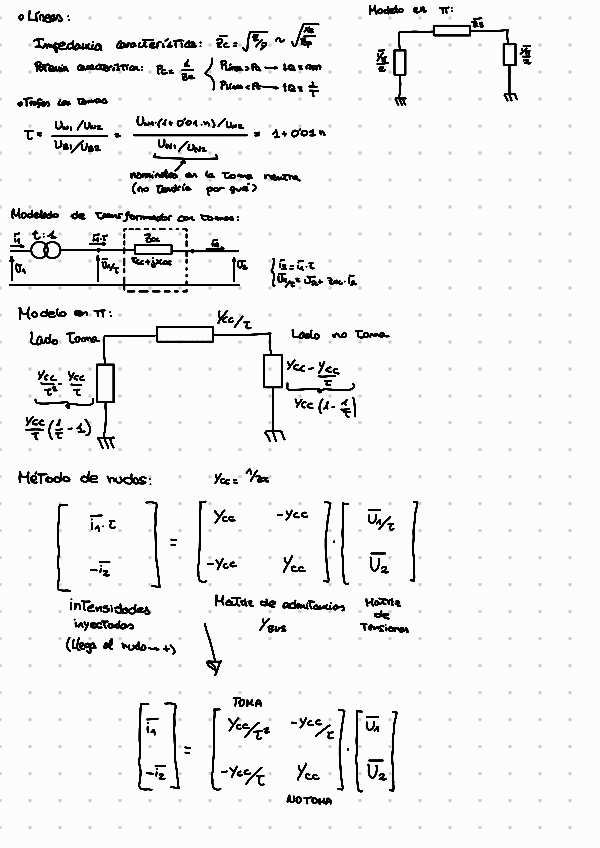 • Líneas:
Modelo en π:
Impedancia característica: Zc =
Potencia característica: Pc =
• Trafos con tomas
τ = (UN1/UN2)/(UB1/UB2) = (UN1·(1+0'01·n)/UN2)/(UN1/UN2) = 1+0'01n
nominales en la toma neutra
(no tendría por qué)
Modelado de transformador con tomas:
i1 τ:1 i1·τ Zcc i2
U1 U1/τ rcc+jxcc U2
i2 = i1·τ
U1/τ = U2 + Zcc·i2
Modelo en π:
Ycc/τ
Lado toma
Lado no toma
Ycc/τ² - Ycc/τ
Ycc - Ycc/τ
Ycc/τ (1/τ - 1)
Ycc (1 - 1/τ)
Método de nudos: Ycc = 1/Zcc
i1·τ Ycc -Ycc U1/τ
= ·
-i2 -Ycc Ycc U2
intensidades inyectadas
(llega al nudo → +)
Matriz de admitancias
YBUS
Matriz de Tensiones
TOMA
i1 Ycc/τ² -Ycc/τ U1
= ·
-i2 -Ycc/τ Ycc U2
NO TOMA